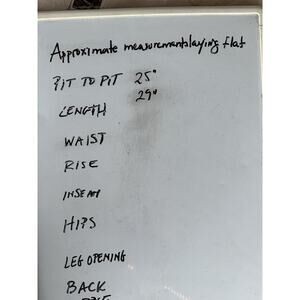 Approximate measurements laying flat
PIT TO PIT 25"
LENGTH 29"
WAIST
RISE
INSEAM
HIPS
LEG OPENING
BACK